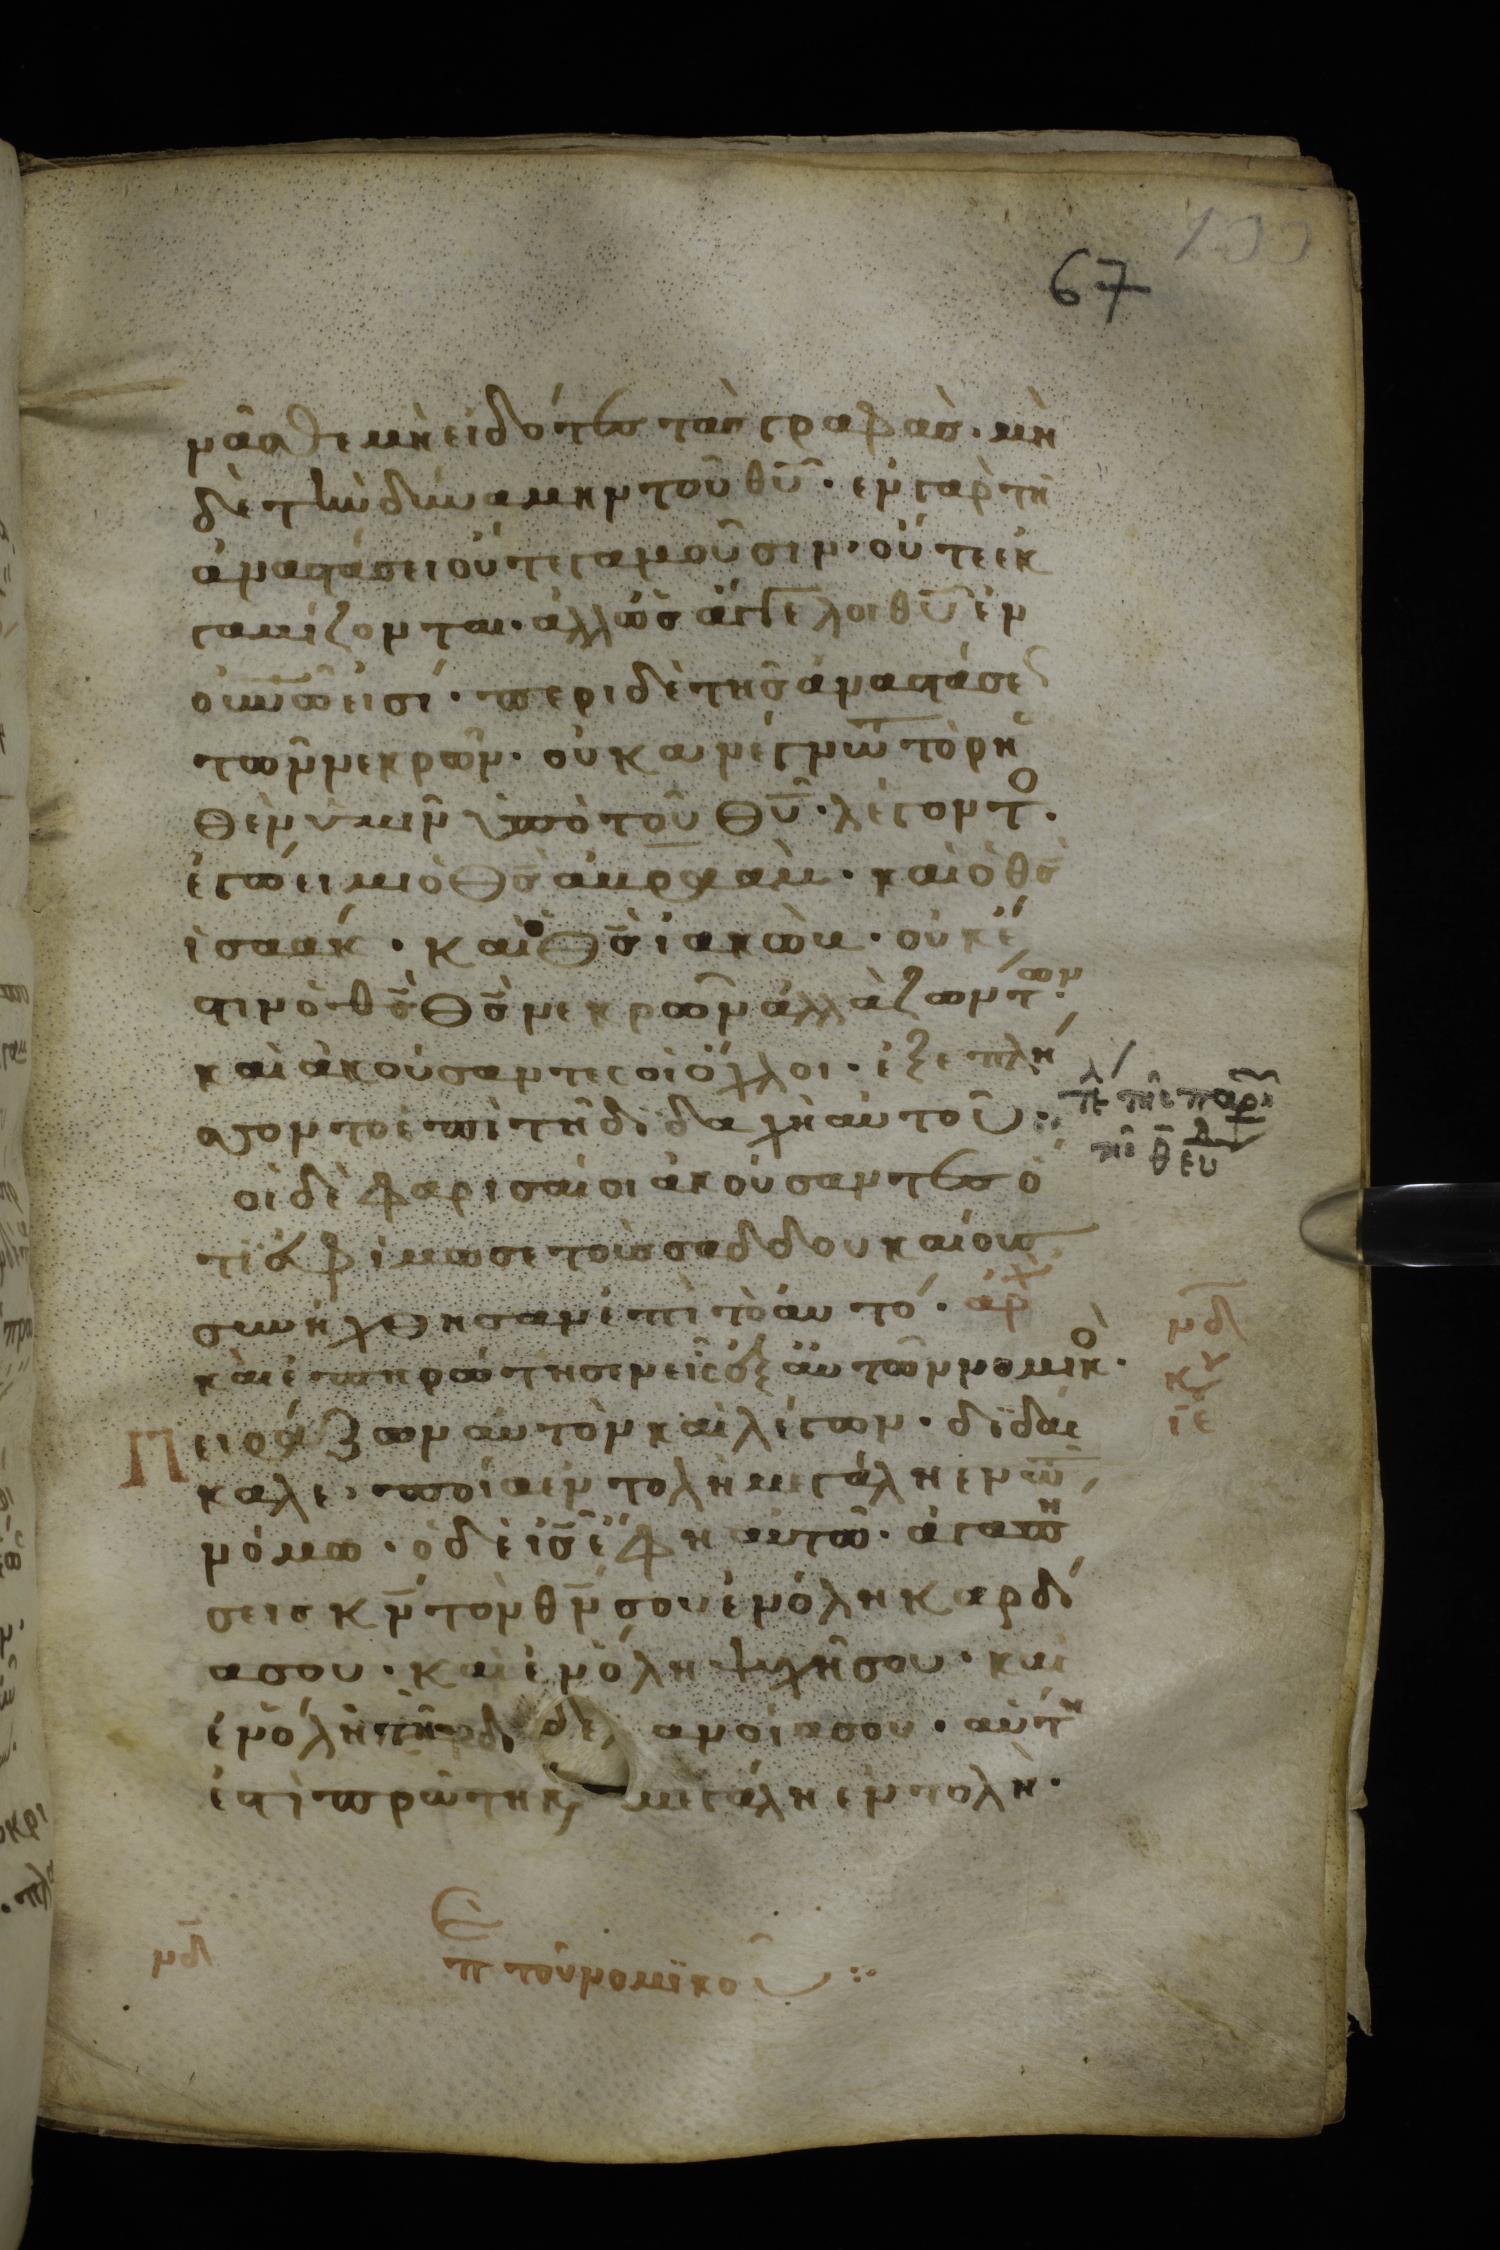 67
νᾶσθε μὴ εἰδότες τὰς γραφὰς· μὴ
δὲ τὴν δύναμην τοῦ θυ̅· ἐν γὰρ τῆ
ἀναστάσει οὔτε γαμοῦσιν· οὔτε ἐκ
γαμίζονται· ἀλλ' ὡς ἄγγελοι θυ̅ ἐν
οὐνῶ εἰσί· περι δὲ τῆς ἀναστάσε
τῶν νεκρῶν· οὐκ ἀνέγνωτε τὸ ρη
θὲν ὑμῖν ὑπὸ τοῦ θυ̅· λέγοντο·
ἐγώ εἰμι ὁ θς̅ ἀβραὰμ· καὶ ὁ θς̅
ἰσαάκ· καὶ ὁ θς̅ ἰακὼβ· οὐκ ἔ
στιν ὁ θς̅ θς̅ νεκρῶν ἀλλὰ ζώντων·
καὶ ἀκούσαντες οἱ ὄχλοι· ἐξεπλή
σσοντο ἐπὶ τῆ διδαχῆ αὐτοῦ:
οἱ δὲ φαρισαῖοι ἀκούσαντες ὅ
τι ἐφίμωσε τοὺς σαδδουκαίους
συνήχθησαν ἐπὶ τὸ αυτό· ἀρχ
καὶ ἐπηρώτησεν εἷς ἐξ αὐτῶν νομικὸ·
Πειράζων αὐτὸν καὶ λέγων· διδάσ
καλε· ποία ἐντολὴ μεγάλη ἐν τῶ
νόμω· ὁ δὲ ις̅ ἔφη αὐτῶ· ἀγαπή
σεις κν̅ τὸν θν̅ σου ἐν ὅλη καρδί
α σου· καὶ ἐν ὅλη ψυχῆ σου· καὶ
ἐν ὅλη τῆ δι ανοία σου· αὕτη
ἐστὶ πρώτη κ μεγάλη ἐντολὴ·
μδ
κυ
ιε
μδ
π τοῦ νομικοῦ: